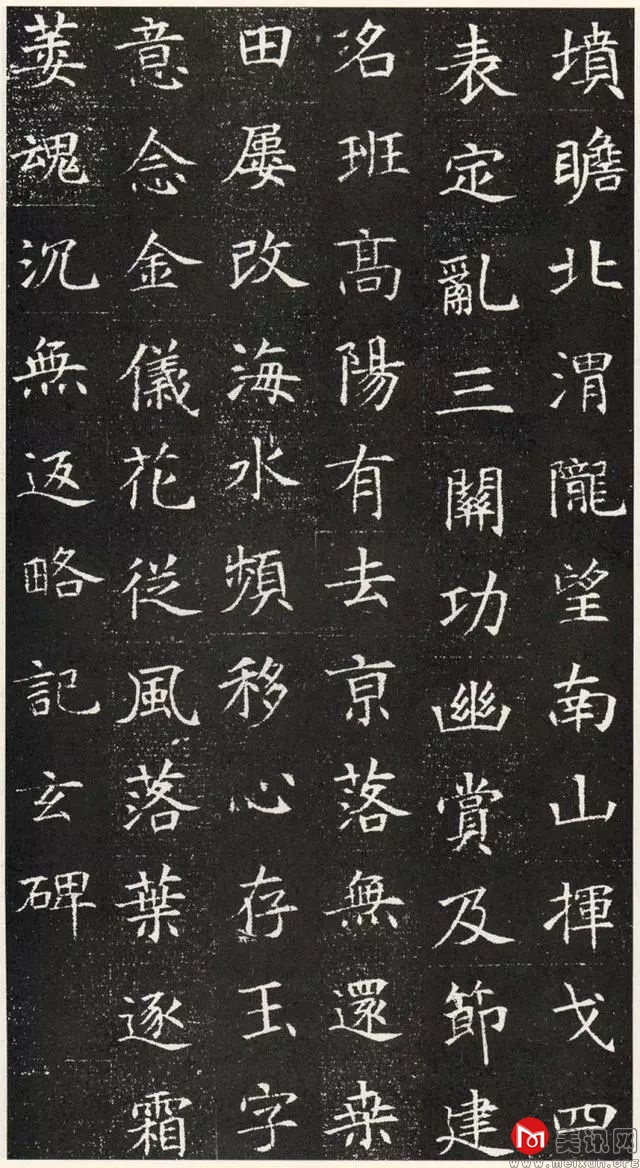 墳瞻北渭隴望南山揮戈四
表定亂三關功幽賞及節建
洺班髙陽有去亰落無還桒
田屢改海水頻移心存玉字
意念金儀花從風落葉逐霜
萎魂沉無返略記玄碑
美讯网
www.meixun.org